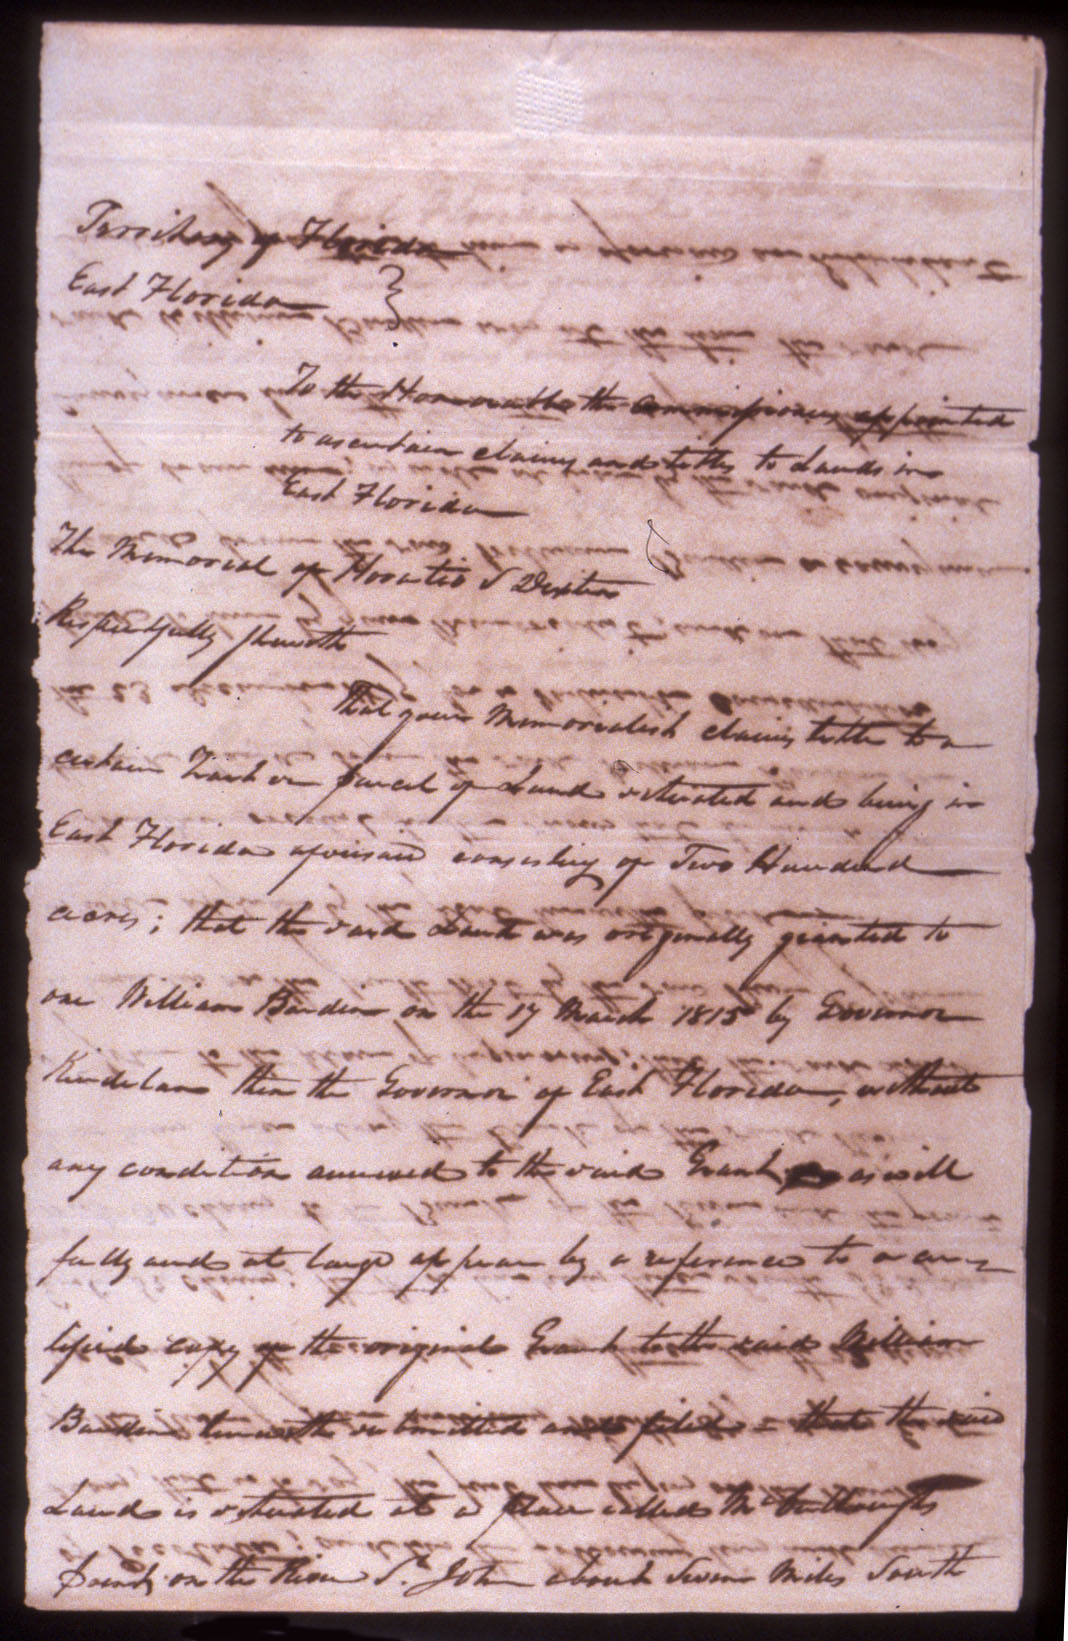 Territory of Florida
East Florida
To the Honourable the Commissioners appointed
to ascertain claims and titles to Lands in
East Florida
The Memorial of Horatio S Dexter
Respectfully sheweth
That your Memorialist claims title to a
certain Tract or parcel of Land situated and being in
East Florida aforesaid consisting of Two Hundred
acres; that the said Land was originally granted to
one William Bardin on the 17 March 1815 by Governor
Kindelan then the Governor of East Florida, without
any condition annexed to the said Grant, as will
fully and at large appear by a reference to a cer
tified copy of the original Grant to the said William
Bardin herewith submitted and filed – that the said
Land is situated at a place called the
point, on the River St. John about Seven Miles South